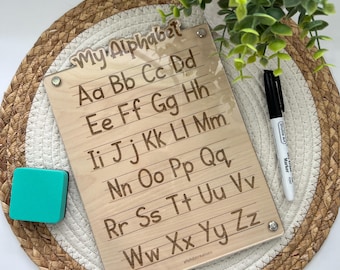 My Alphabet
Aa Bb Cc Dd
Ee Ff Gg Hh
Ii Jj Kk Ll Mm
Nn Oo Pp Qq
Rr Ss Tt Uu Vv
Ww Xx Yy Zz
Marker